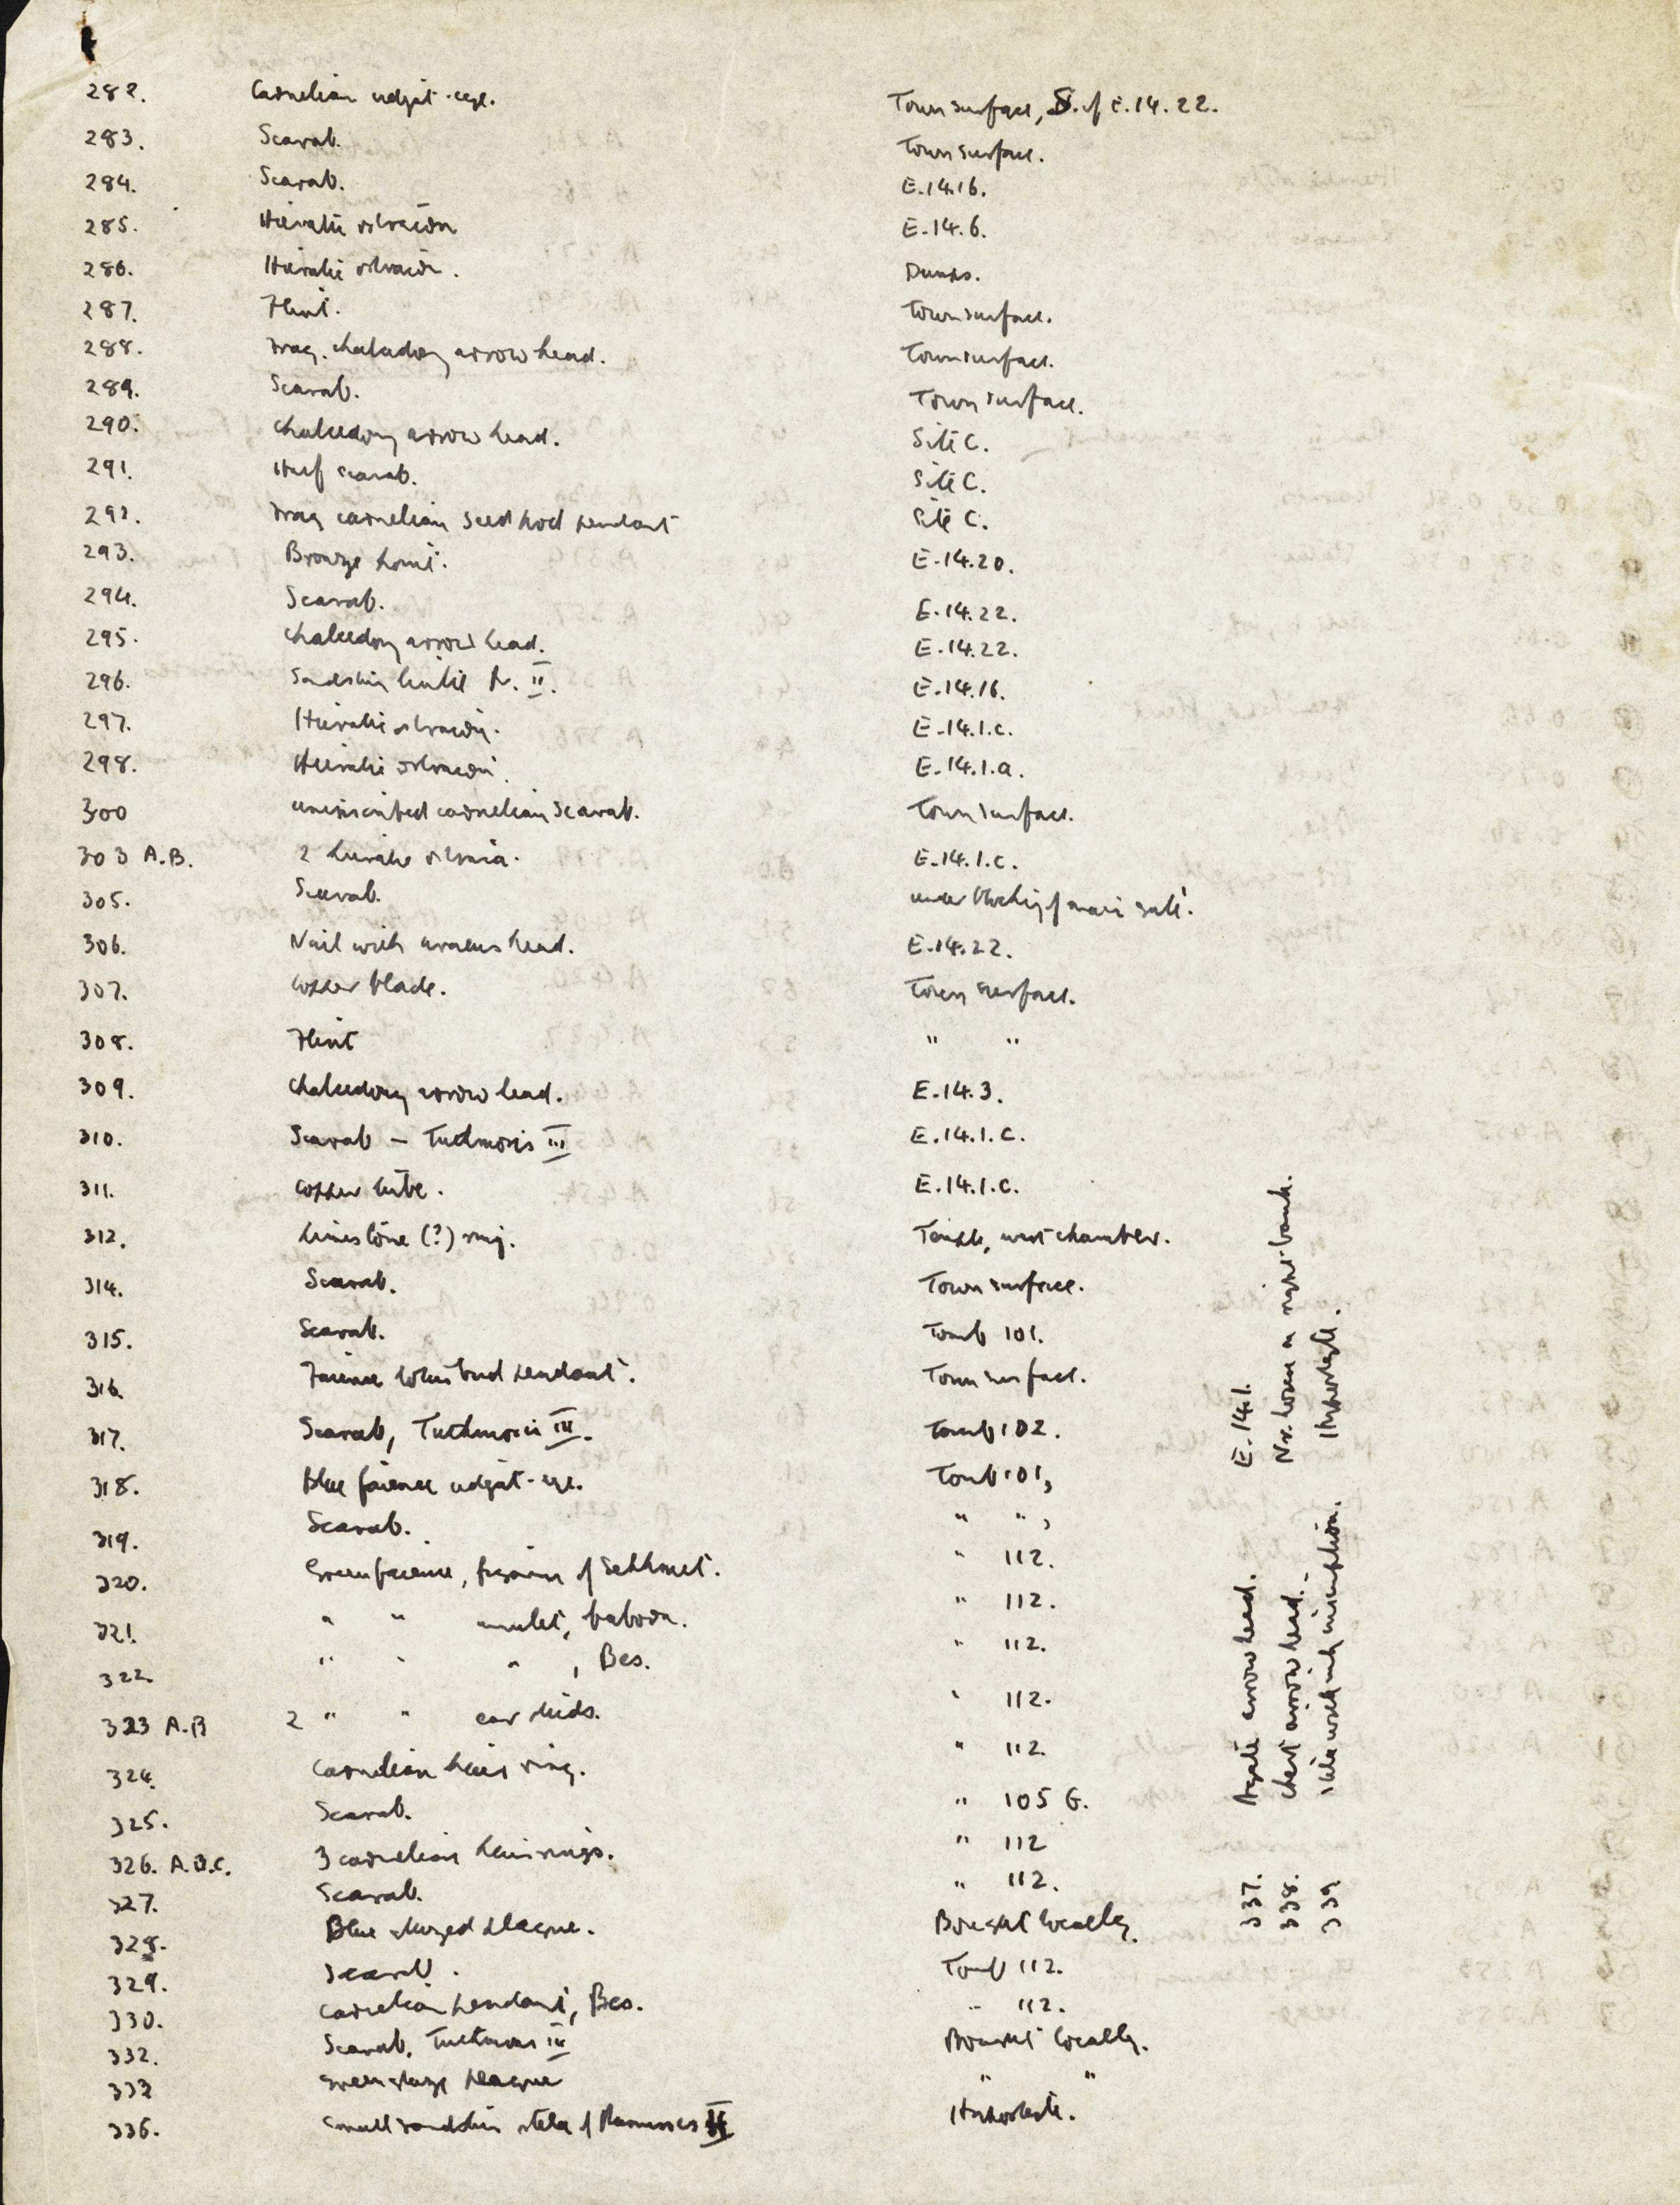 282. Carnelian udjat-eye. Town surface, S. of E.14.22.
283. Scarab. Town surface.
284. Scarab. E.14.16.
285. Hieratic ostracon E.14.6.
286. Hieratic ostracon. Dumps.
287. Flint. Town surface.
288. Frag. chalcedony arrow head. Town surface.
289. Scarab. Town surface.
290. Chalcedony arrow head. Site C.
291. Half scarab. Site C.
292. Frag carnelian seed pod pendant Site C.
293. Bronze point. E.14.20.
294. Scarab. E.14.22.
295. Chalcedony arrow head. E.14.22.
296. Sandstone lintel R. II. E.14.16.
297. Hieratic ostracon. E.14.1.c.
298. Hieratic ostracon. E.14.1.a.
300 uninscribed carnelian scarab. Town surface.
303 A.B. 2 hieratic ostraca. E.14.1.c.
305. Scarab. under blocking of main gate.
306. Nail with uraeus head. E.14.22.
307. Copper blade. Town surface.
308. Flint " "
309. Chalcedony arrow head. E.14.3.
310. Scarab - Tuthmosis III E.14.1.C.
311. Copper tube. E.14.1.C.
312. Limestone (?) ring. Temple, west chamber.
314. Scarab. Town surface.
315. Scarab. Tomb 101.
316. Faience lotus bud pendant. Town surface.
317. Scarab, Tuthmosis III. Tomb 102.
318. Blue faience udjat-eye. Tomb 101,
319. Scarab. " " ,
320. Green faience, figurine of Sekhmet. " 112.
321. " " amulet, baboon. " 112.
322. " " " , Bes. " 112.
323 A.B 2 " " ear studs. " 112.
324. Carnelian hair ring. " 112.
325. Scarab. " 105 G.
326. A.B.C. 3 carnelian hair rings. " 112
327. Scarab. " 112.
328. Blue glazed plaque. Bought locally.
329. Scarab. Tomb 112.
330. Carnelian pendant, Bes. " 112.
332. Scarab, Tuthmosis III Bought locally.
333 Green glaze plaque " "
336. Small sandstone stela of Ramesses II Hypostyle.
337. Agate arrow head. E.14.1.
338. Chert arrow head. Nr. on right bank.
339 Stela with ink inscription. Hypostyle.